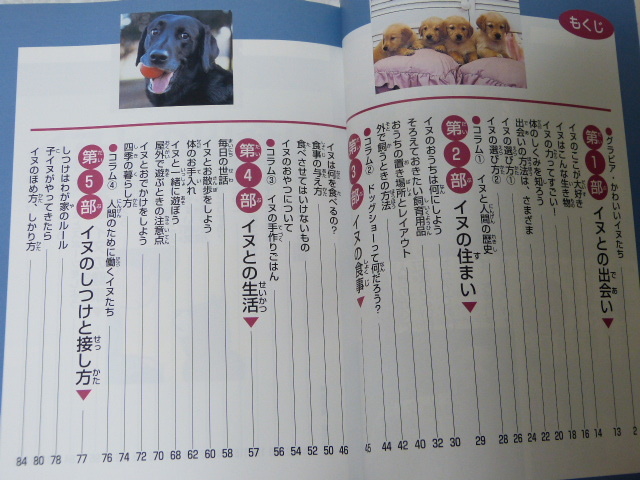 もくじ
●グラビア・かわいいイヌたち 2
第1部 イヌとの出会い▼ 13
イヌのここが大好き 14
イヌはどんな生き物 16
イヌの力ってすごい 18
体のしくみを知ろう 20
出会いの方法は、さまざま 22
イヌの選び方① 24
イヌの選び方② 26
●コラム① イヌと人間の歴史 28
第2部 イヌの住まい▼ 29
イヌのおうちは何にしよう 30
そろえておきたい飼育用品 32
おうちの置き場所とレイアウト 40
外で飼うときの方法 42
●コラム② ドッグショーって何だろう? 44
第3部 イヌの食事▼ 45
イヌは何を食べるの? 46
食事の与え方 50
食べさせてはいけないもの 52
イヌのおやつについて 54
●コラム③ イヌの手作りごはん 56
第4部 イヌとの生活▼ 57
毎日の世話 58
イヌとお散歩をしよう 60
体のお手入れ 62
イヌと一緒に遊ぼう 68
屋外で遊ぶときの注意点 70
イヌとおでかけをしよう 72
四季の暮らし方 74
●コラム④ 人間のために働くイヌたち 76
第5部 イヌのしつけと接し方▼ 77
しつけはわが家のルール 78
子イヌがやってきたら 80
イヌのほめ方、しかり方 84